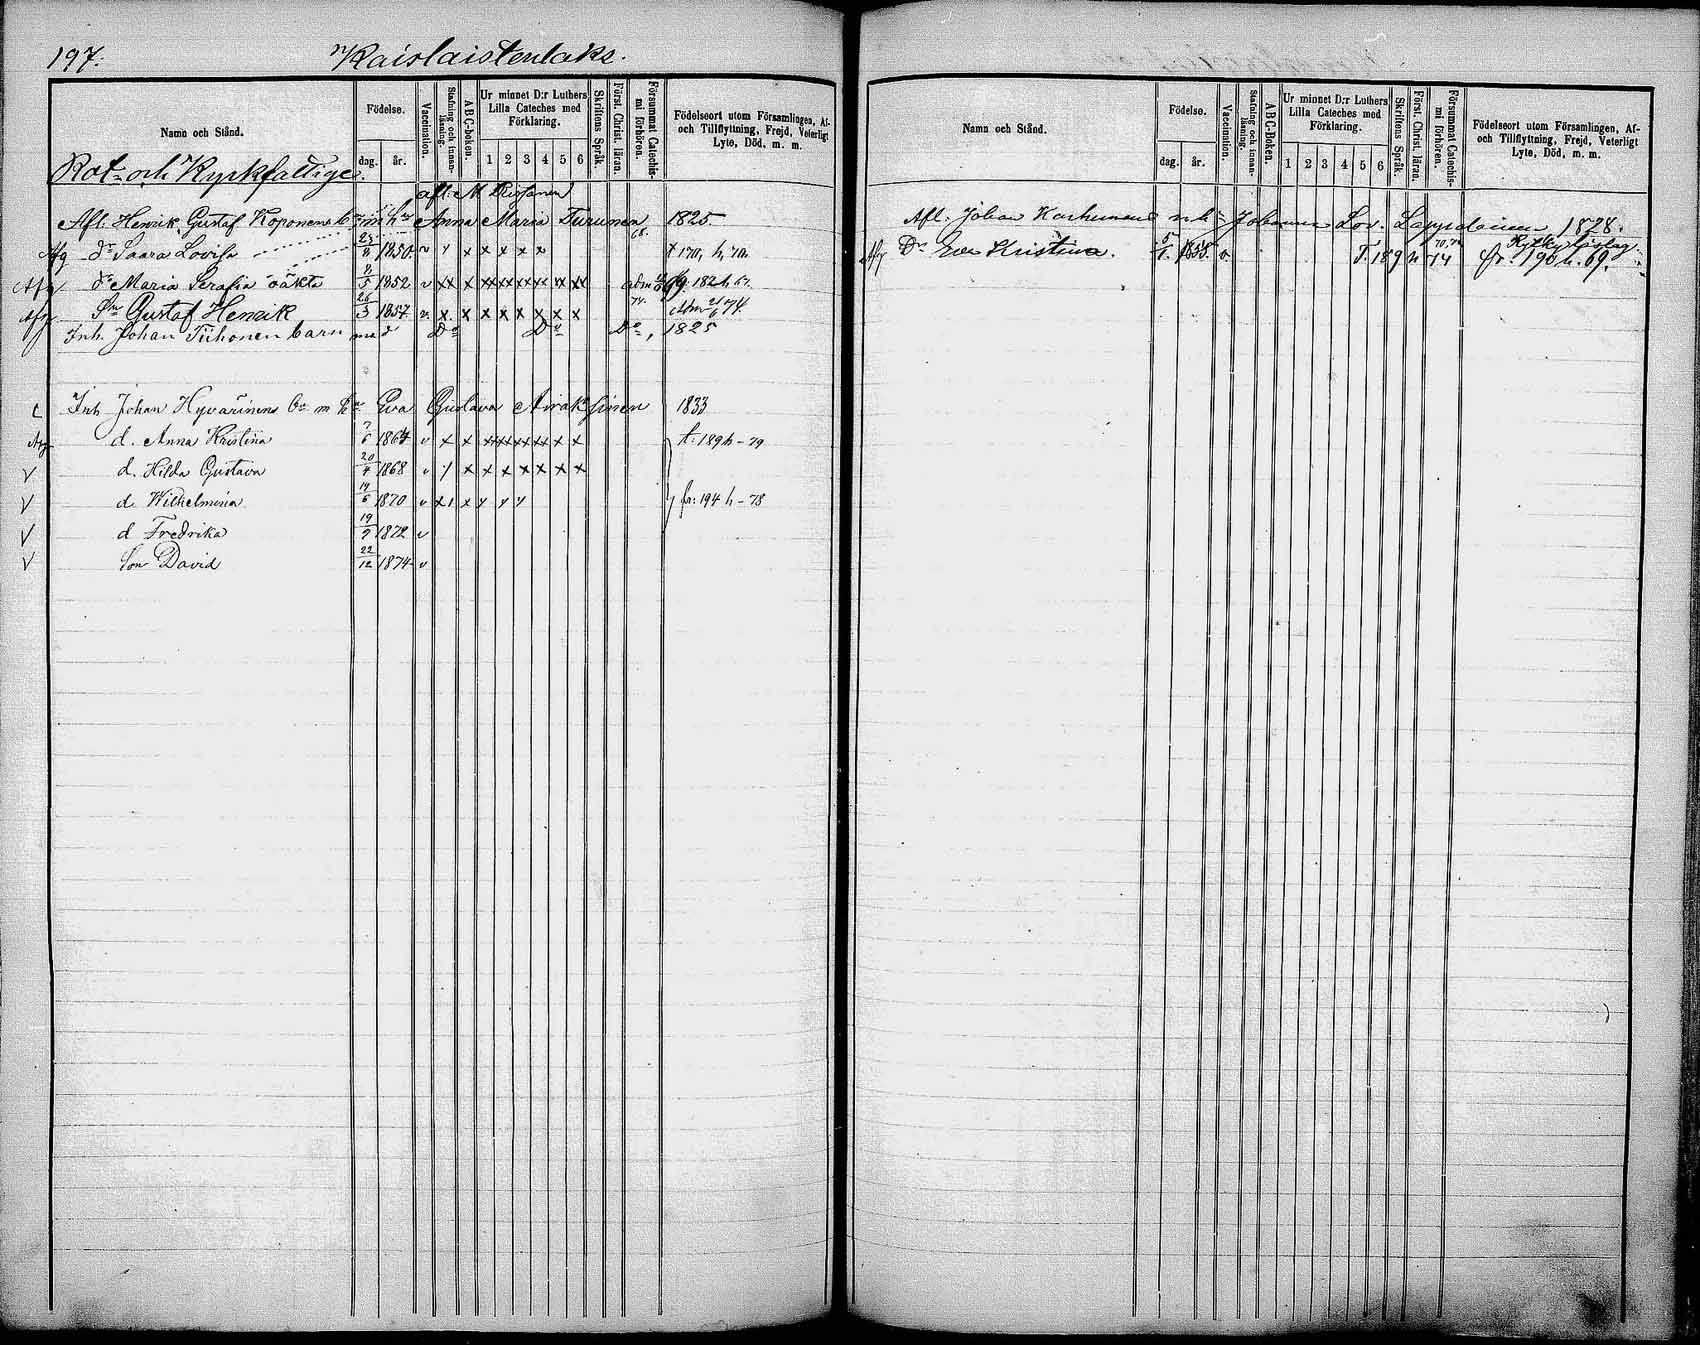 197. Kaislaistenlaks.
Namn och Stånd.
Födelse.
dag. år.
Vaccination.
Stafning och innanläsning.
ABC-boken.
Ur minnet D:r Luthers Lilla Cateches med Förklaring.
1 2 3 4 5 6
Skriftens Språk.
Först. Christ. läran.
Försummat Catechismi förhören.
Födelseort utom Församlingen, Af- och Tillflyttning, Frejd, Veterligt Lyte, Död, m. m.
Rot- och Kyrkfattige.
afl: M
Afl. Henrik Gustaf Koponens b m h Anna Maria Turunen 1825.
Afg dr Saara Lovisa 8 1850 v x x x x x 68. 170, h, 70.
Afg dr Maria Serafia oäkta 8/5 1852 v xx x xx xx xx xx xx xx 182 h 67.
Afg Sn Gustaf Henrik 26/3 1857 v. x. x x x x x x x 74.
Inh. Johan Tiihonen barn med Do Do Do, 1825
Inh Johan Hyvärinens bn m hu Eva Gustava Airaksinen 1833
Afg d. Anna Kristina 7/6 1864 v x x xx xx xx xx x x t. 189 h - 79
V d. Hilda Gustava 20/4 1868 v / x x x x x x x
V d. Wilhelmina 19/6 1870 v x x fr: 194 h - 78
V d Fredrika 19/9 1872 v
V Son David 22/12 1874 v
Namn och Stånd.
Födelse.
dag. år.
Vaccination.
Stafning och innanläsning.
ABC-boken.
Ur minnet D:r Luthers Lilla Cateches med Förklaring.
1 2 3 4 5 6
Skriftens Språk.
Först. Christ. läran.
Försummat Catechismi förhören.
Födelseort utom Församlingen, Af- och Tillflyttning, Frejd, Veterligt Lyte, Död, m. m.
Afl. Johan Karhunens Johanna Lov. Lappalainen 1828.
Afg Dr Eva Kristina. 5/1. 1855. v. T. 189 h 74 fr. 190 h. 69.